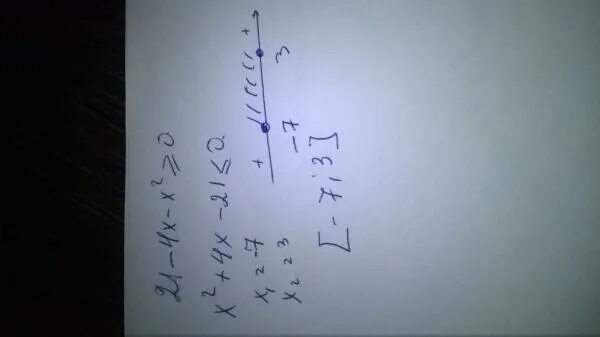 21 - 4x - x² ≥ 0
x² + 4x - 21 ≤ 0
x₁ = -7
x₂ = 3
+ +
-7 3
[-7; 3]